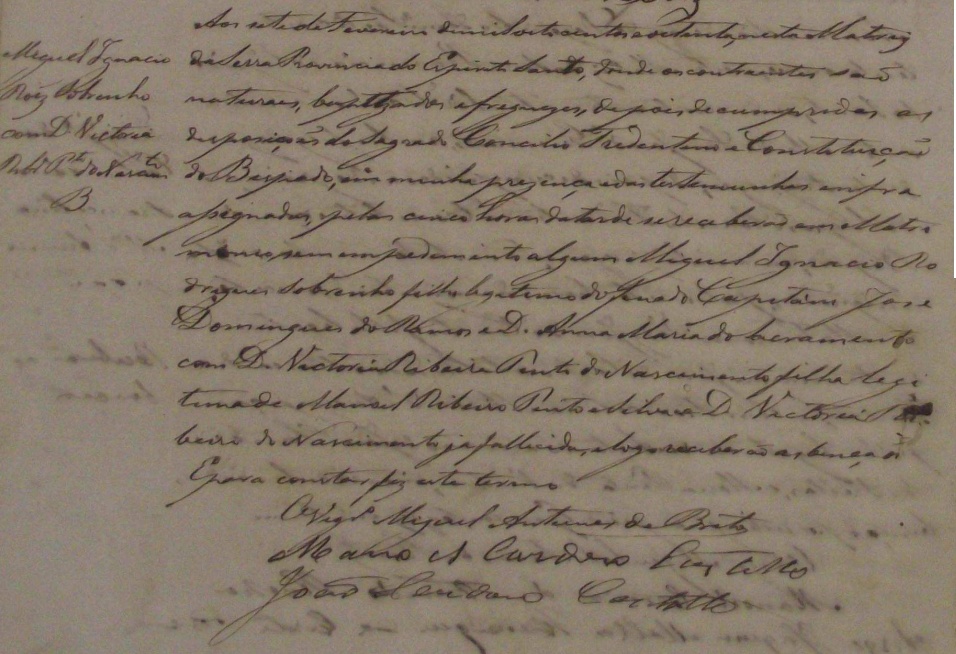 Miguel Ignacio
Roiz Sobrenho
com D. Victoria
Ribr.ª P.to do Nascim.to
B
Aos sete de Fevereiro de mil oito centos e oitenta, nesta Matriz
da Serra Provincia do Espirito Santo, donde os contraentes são
naturaes, baptizados e freguezes, depois de cumpridas as
desposições do Sagrado Concilio Tredentino e Constituição
do Bispado, em minha prezença e das testemunhas infra
assignadas, pelas cinco horas da tarde se receberão em Matri
monio, sem empedimento algum Miguel Ignacio Ro
drigues Sobrenho filho legitimo do finado Capitam José
Domingues do Ramos e D. Anna Maria do Sacramento
com D. Victoria Ribeira Pinto do Nascimento filha legi
tima de Manoel Ribeiro Pinto e Silva e D. Victoria Ri
beiro do Nascimento ja fallecida, e logo receberão as bençãos
E para constar fiz este termo
O Vigr.º Miguel Antunes de Brito
Manoel Cardoso Castello
João Cardoso Castello